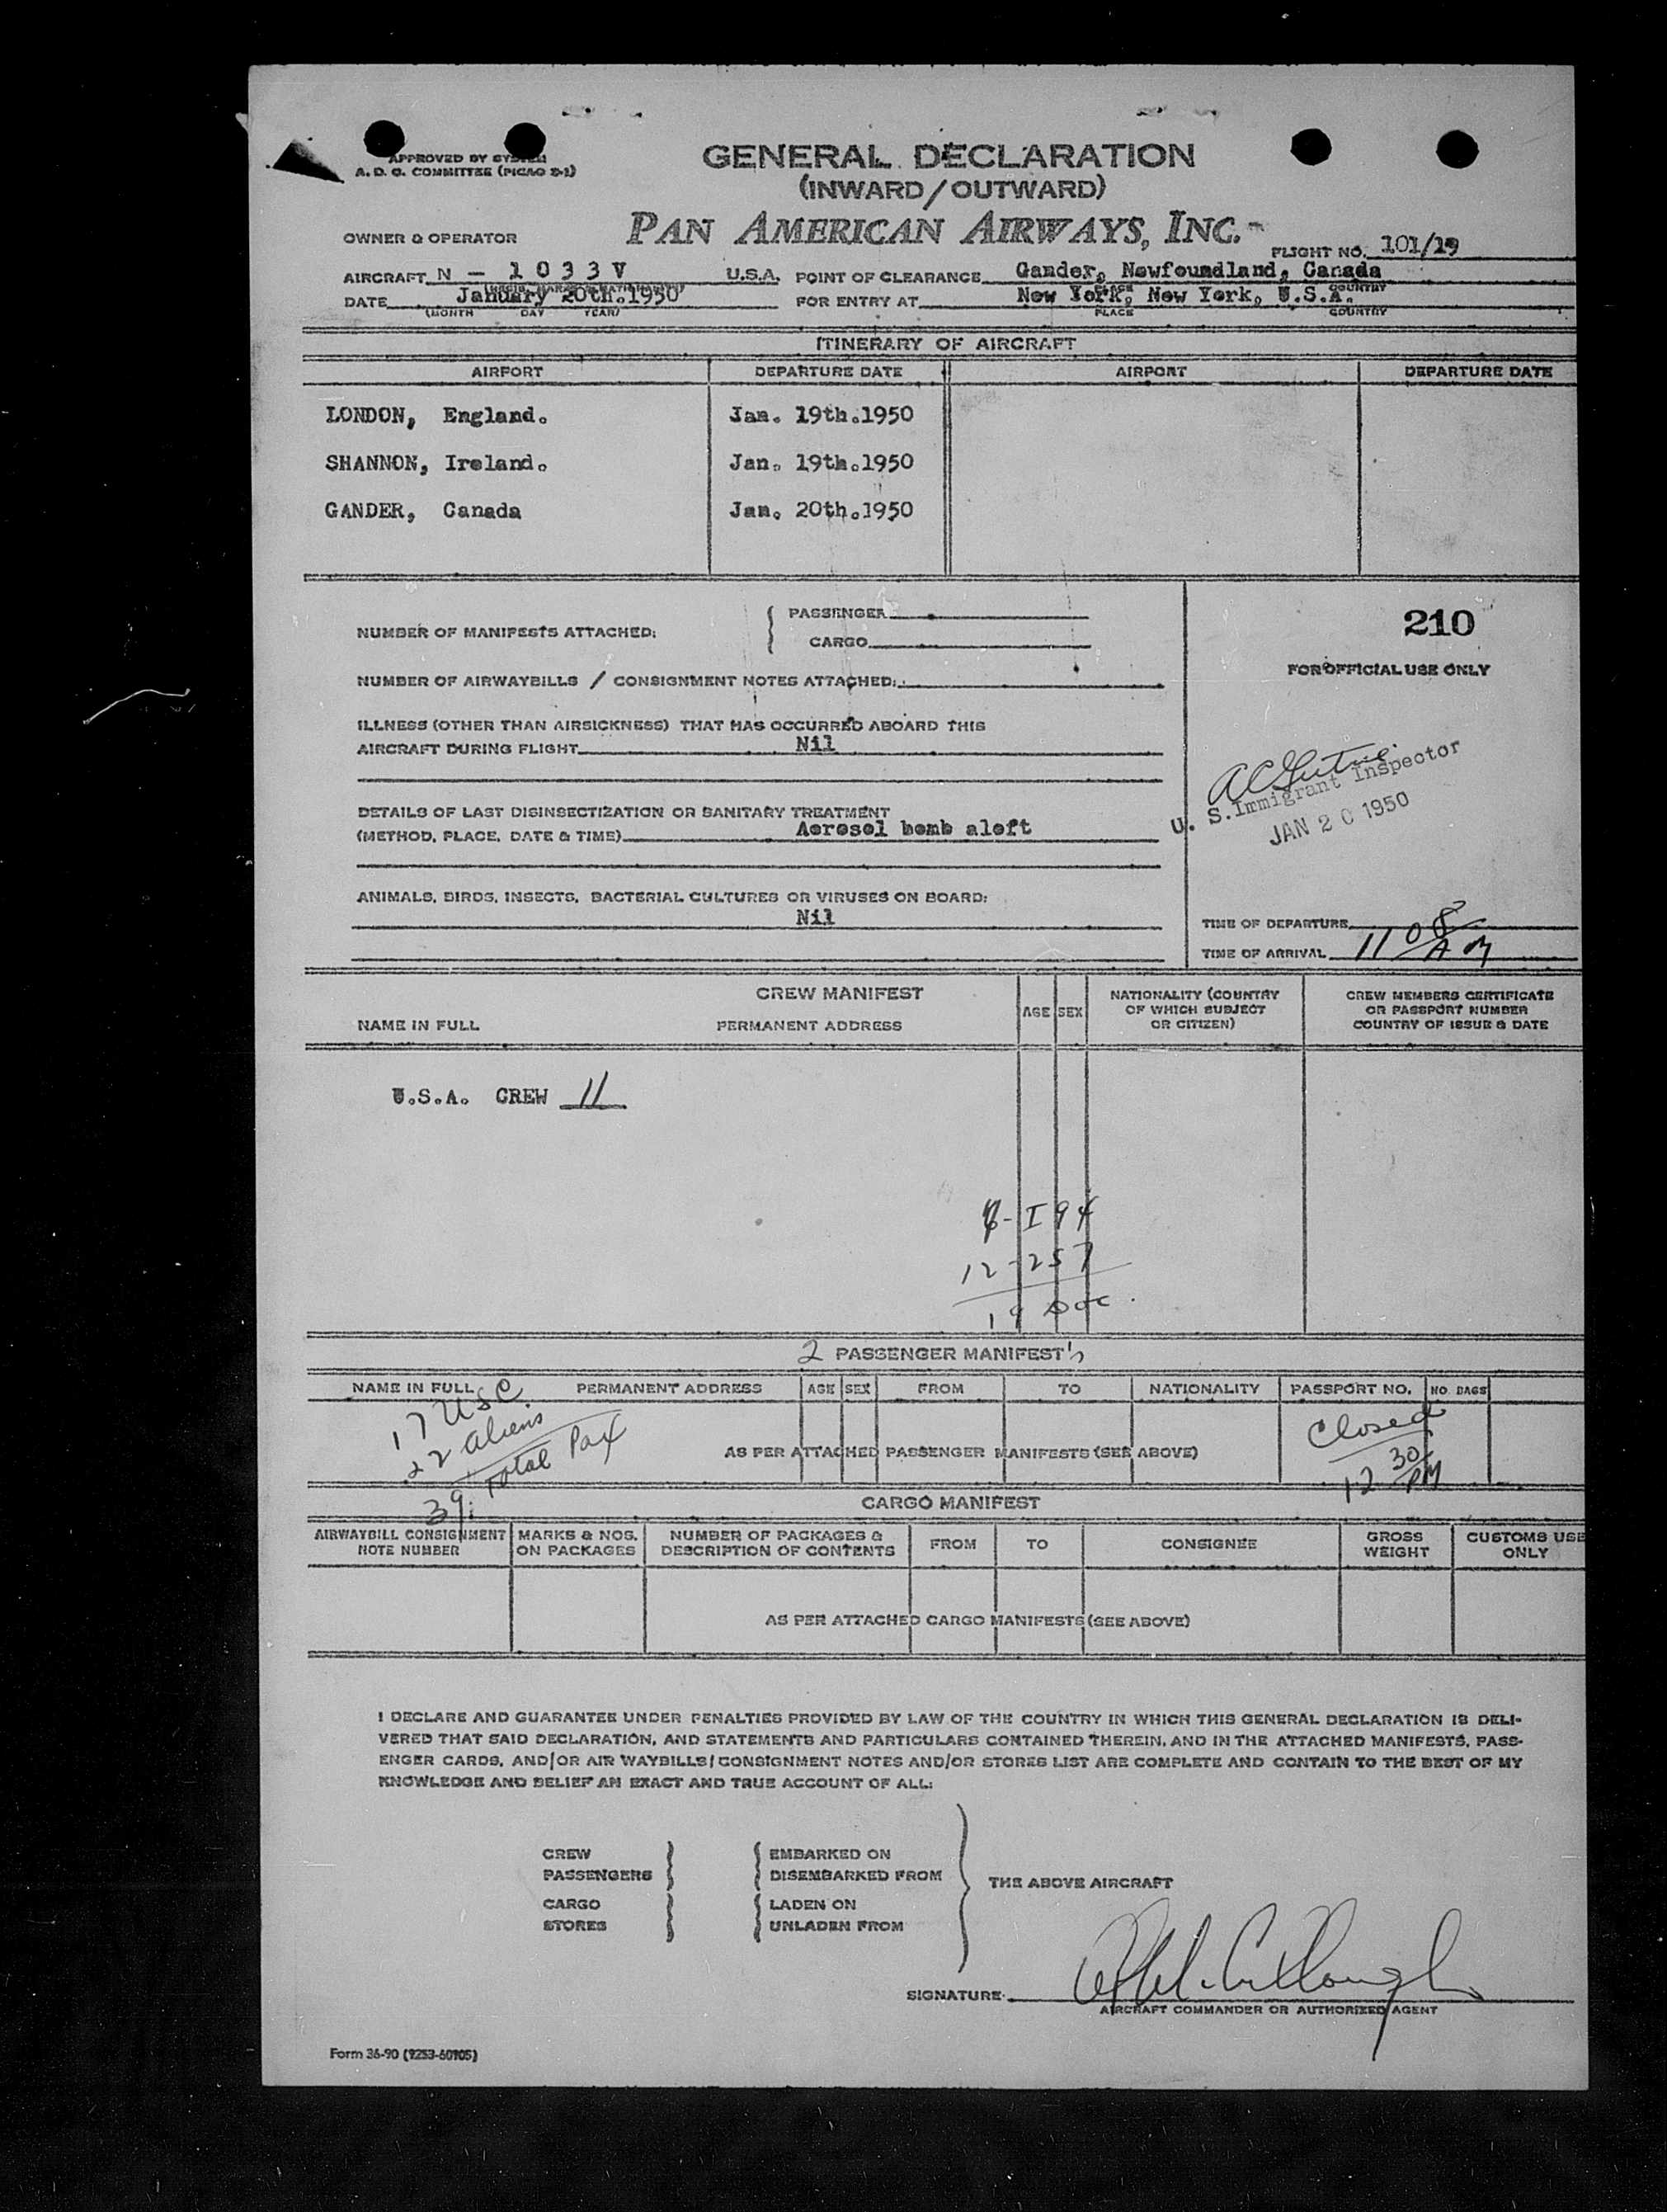 APPROVED BY SYSTEM
A. D. O. COMMITTEE (PICAO 2-1)
GENERAL DECLARATION
(INWARD/OUTWARD)
OWNER & OPERATOR PAN AMERICAN AIRWAYS, INC. FLIGHT NO. 101/19
AIRCRAFT N - 1033V U.S.A. POINT OF CLEARANCE Gander, Newfoundland, Canada
PLACE COUNTRY
DATE January 20th.1950 FOR ENTRY AT New York, New York, U.S.A.
(MONTH DAY YEAR) PLACE COUNTRY
ITINERARY OF AIRCRAFT
AIRPORT DEPARTURE DATE AIRPORT DEPARTURE DATE
LONDON, England. Jan. 19th.1950
SHANNON, Ireland. Jan. 19th.1950
GANDER, Canada Jan. 20th.1950
NUMBER OF MANIFESTS ATTACHED: PASSENGER
CARGO
210
FOR OFFICIAL USE ONLY
NUMBER OF AIRWAYBILLS / CONSIGNMENT NOTES ATTACHED:
ILLNESS (OTHER THAN AIRSICKNESS) THAT HAS OCCURRED ABOARD THIS
AIRCRAFT DURING FLIGHT Nil
U. S. Immigrant Inspector
JAN 20 1950
DETAILS OF LAST DISINSECTIZATION OR SANITARY TREATMENT
(METHOD, PLACE, DATE & TIME) Aerosol bomb aloft
ANIMALS, BIRDS, INSECTS, BACTERIAL CULTURES OR VIRUSES ON BOARD:
Nil
TIME OF DEPARTURE
TIME OF ARRIVAL 11 08 AM
CREW MANIFEST
NAME IN FULL PERMANENT ADDRESS AGE SEX NATIONALITY (COUNTRY OF WHICH SUBJECT OR CITIZEN) CREW MEMBERS CERTIFICATE OR PASSPORT NUMBER COUNTRY OF ISSUE & DATE
U.S.A. CREW 11
- I 94
12 - 257
19 Doc.
2 PASSENGER MANIFEST's
NAME IN FULL PERMANENT ADDRESS AGE SEX FROM TO NATIONALITY PASSPORT NO. NO. BAGS
17 USC
22 aliens
39 Total Pax
AS PER ATTACHED PASSENGER MANIFESTS (SEE ABOVE)
Closed
12 30 PM
CARGO MANIFEST
AIRWAYBILL CONSIGNMENT NOTE NUMBER MARKS & NOS. ON PACKAGES NUMBER OF PACKAGES & DESCRIPTION OF CONTENTS FROM TO CONSIGNEE GROSS WEIGHT CUSTOMS USE ONLY
AS PER ATTACHED CARGO MANIFESTS (SEE ABOVE)
I DECLARE AND GUARANTEE UNDER PENALTIES PROVIDED BY LAW OF THE COUNTRY IN WHICH THIS GENERAL DECLARATION IS DELI-
VERED THAT SAID DECLARATION, AND STATEMENTS AND PARTICULARS CONTAINED THEREIN, AND IN THE ATTACHED MANIFESTS, PASS-
ENGER CARDS, AND/OR AIR WAYBILLS/CONSIGNMENT NOTES AND/OR STORES LIST ARE COMPLETE AND CONTAIN TO THE BEST OF MY
KNOWLEDGE AND BELIEF AN EXACT AND TRUE ACCOUNT OF ALL:
CREW EMBARKED ON
PASSENGERS DISEMBARKED FROM
THE ABOVE AIRCRAFT
CARGO LADEN ON
STORES UNLADEN FROM
SIGNATURE
AIRCRAFT COMMANDER OR AUTHORIZED AGENT
Form 36-90 (9253-60905)